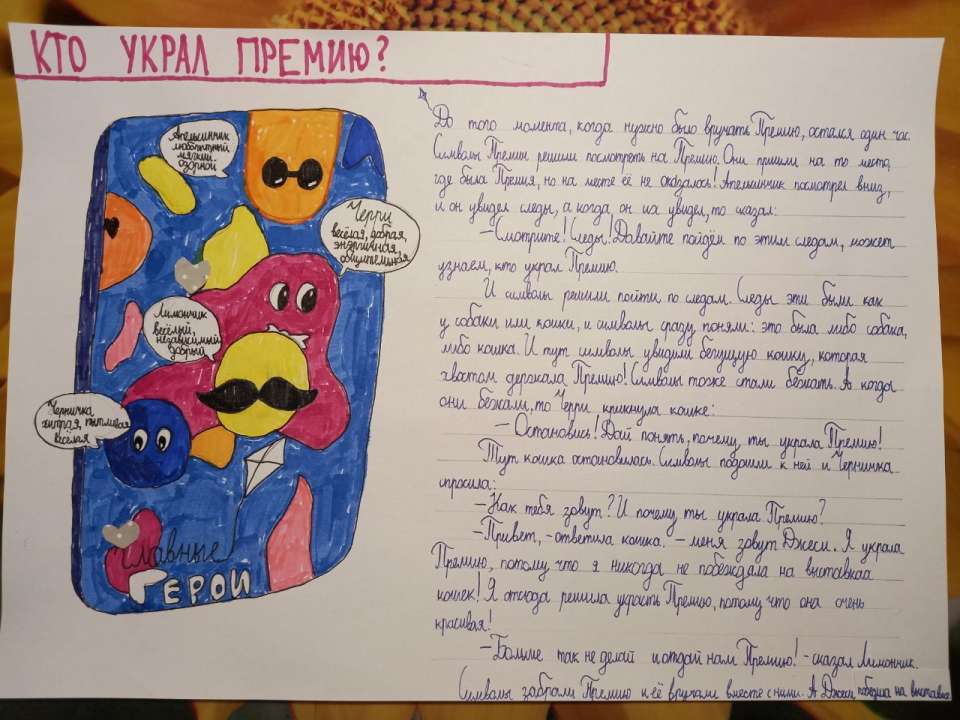 КТО УКРАЛ ПРЕМИЮ?
Апельсинчик
любопытный
мягкий
озорной
Черри
весёлая, добрая,
энэргичная,
общительная
Лимончик
весёлый,
независимый
добрый
Черничка
хитрая, пытливая
весёлая
Главные
ГЕРОИ
До того момента, когда нужно было вручать Премию, остался один час.
Символы Премии решили посмотреть на Премию. Они пришли на то место,
где была Премия, но на месте её не оказалось! Апельсинчик посмотрел вниз,
и он увидел следы, а когда он их увидел, то сказал:
– Смотрите! Следы! Давайте пойдём по этим следам, может
узнаем, кто украл Премию.
И символы решили пойти по следам. Следы эти были как
у собаки или кошки, и символы сразу поняли: это была либо собака,
либо кошка. И тут символы увидили бегущую кошку, которая
хвостом держала Премию! Символы тоже стали бежать. А когда
они бежали, то Черри крикнула кошке:
– Остановись! Дай понять, почему ты украла Премию!
Тут кошка остановилась. Символы подошли к ней и Черничка
спросила:
– Как тебя зовут? И почему ты украла Премию?
– Привет, - ответила кошка. – меня зовут Джеси. Я украла
Премию, потому что я никогда не побеждала на выставках
кошек! Я отсюда решила украсть Премию, потому что она очень
красивая!
– Больше так не делай и отдай нам Премию! - сказал Лимончик.
Символы забрали Премию и её вручали вместе с ними. А Джеси победила на выставке